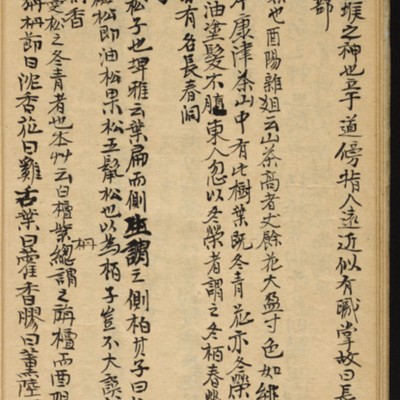 堠之神也立于道傍指人遠近似有職掌故曰長
都
也酉陽雜俎云山茶高者丈餘花大盈寸色如緋
康津茶山中有此樹葉既冬青花亦冬榮
油塗髮不䐈東人忽以冬榮者謂之冬栢春
有名長春洞
松子也埤雅云葉扁而側生謂之側柏其子曰
松即油松果松五鬣松也以為柏子豈不大誤
香
之冬青者也本艸云白檀紫總謂之栴檀而酉陽
栴節曰沈香花曰雞舌葉曰藿香膠曰薰陸